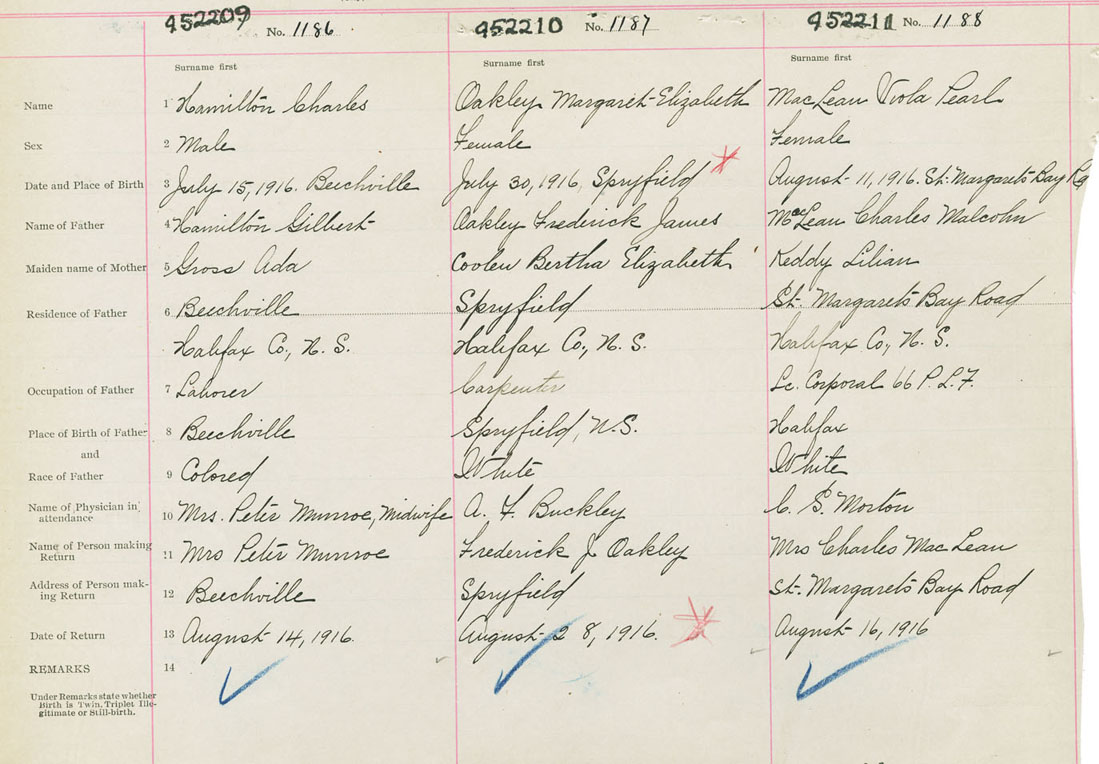 952209 No. 1186 952210 No. 1187 952211 No. 1188
Surname first Surname first Surname first
Name 1 Hamilton Charles Oakley Margaret Elizabeth MacLean Viola Pearl
Sex 2 Male Female Female
Date and Place of Birth 3 July 15, 1916. Beechville July 30, 1916, Spryfield August 11, 1916. St. Margarets Bay Rd
Name of Father 4 Hamilton Gilbert Oakley Frederick James MacLean Charles Malcohn
Maiden name of Mother 5 Gross Ada Coolen Bertha Elizabeth Keddy Lilian
Residence of Father 6 Beechville Spryfield St. Margarets Bay Road
Halifax Co., N. S. Halifax Co., N. S. Halifax Co., N. S.
Occupation of Father 7 Laborer Carpenter Lc. Corporal 66 P. L. F.
Place of Birth of Father 8 Beechville Spryfield, N.S. Halifax
and
Race of Father 9 Colored White White
Name of Physician in
attendance 10 Mrs. Peter Munroe, Midwife A. F. Buckley C. S. Morton
Name of Person making
Return 11 Mrs Peter Munroe Frederick J Oakley Mrs Charles MacLean
Address of Person mak-
ing Return 12 Beechville Spryfield St. Margarets Bay Road
Date of Return 13 August 14, 1916. August 28, 1916. August 16, 1916
REMARKS 14
Under Remarks state whether
Birth is Twin, Triplet Ille-
gitimate or Still-birth.